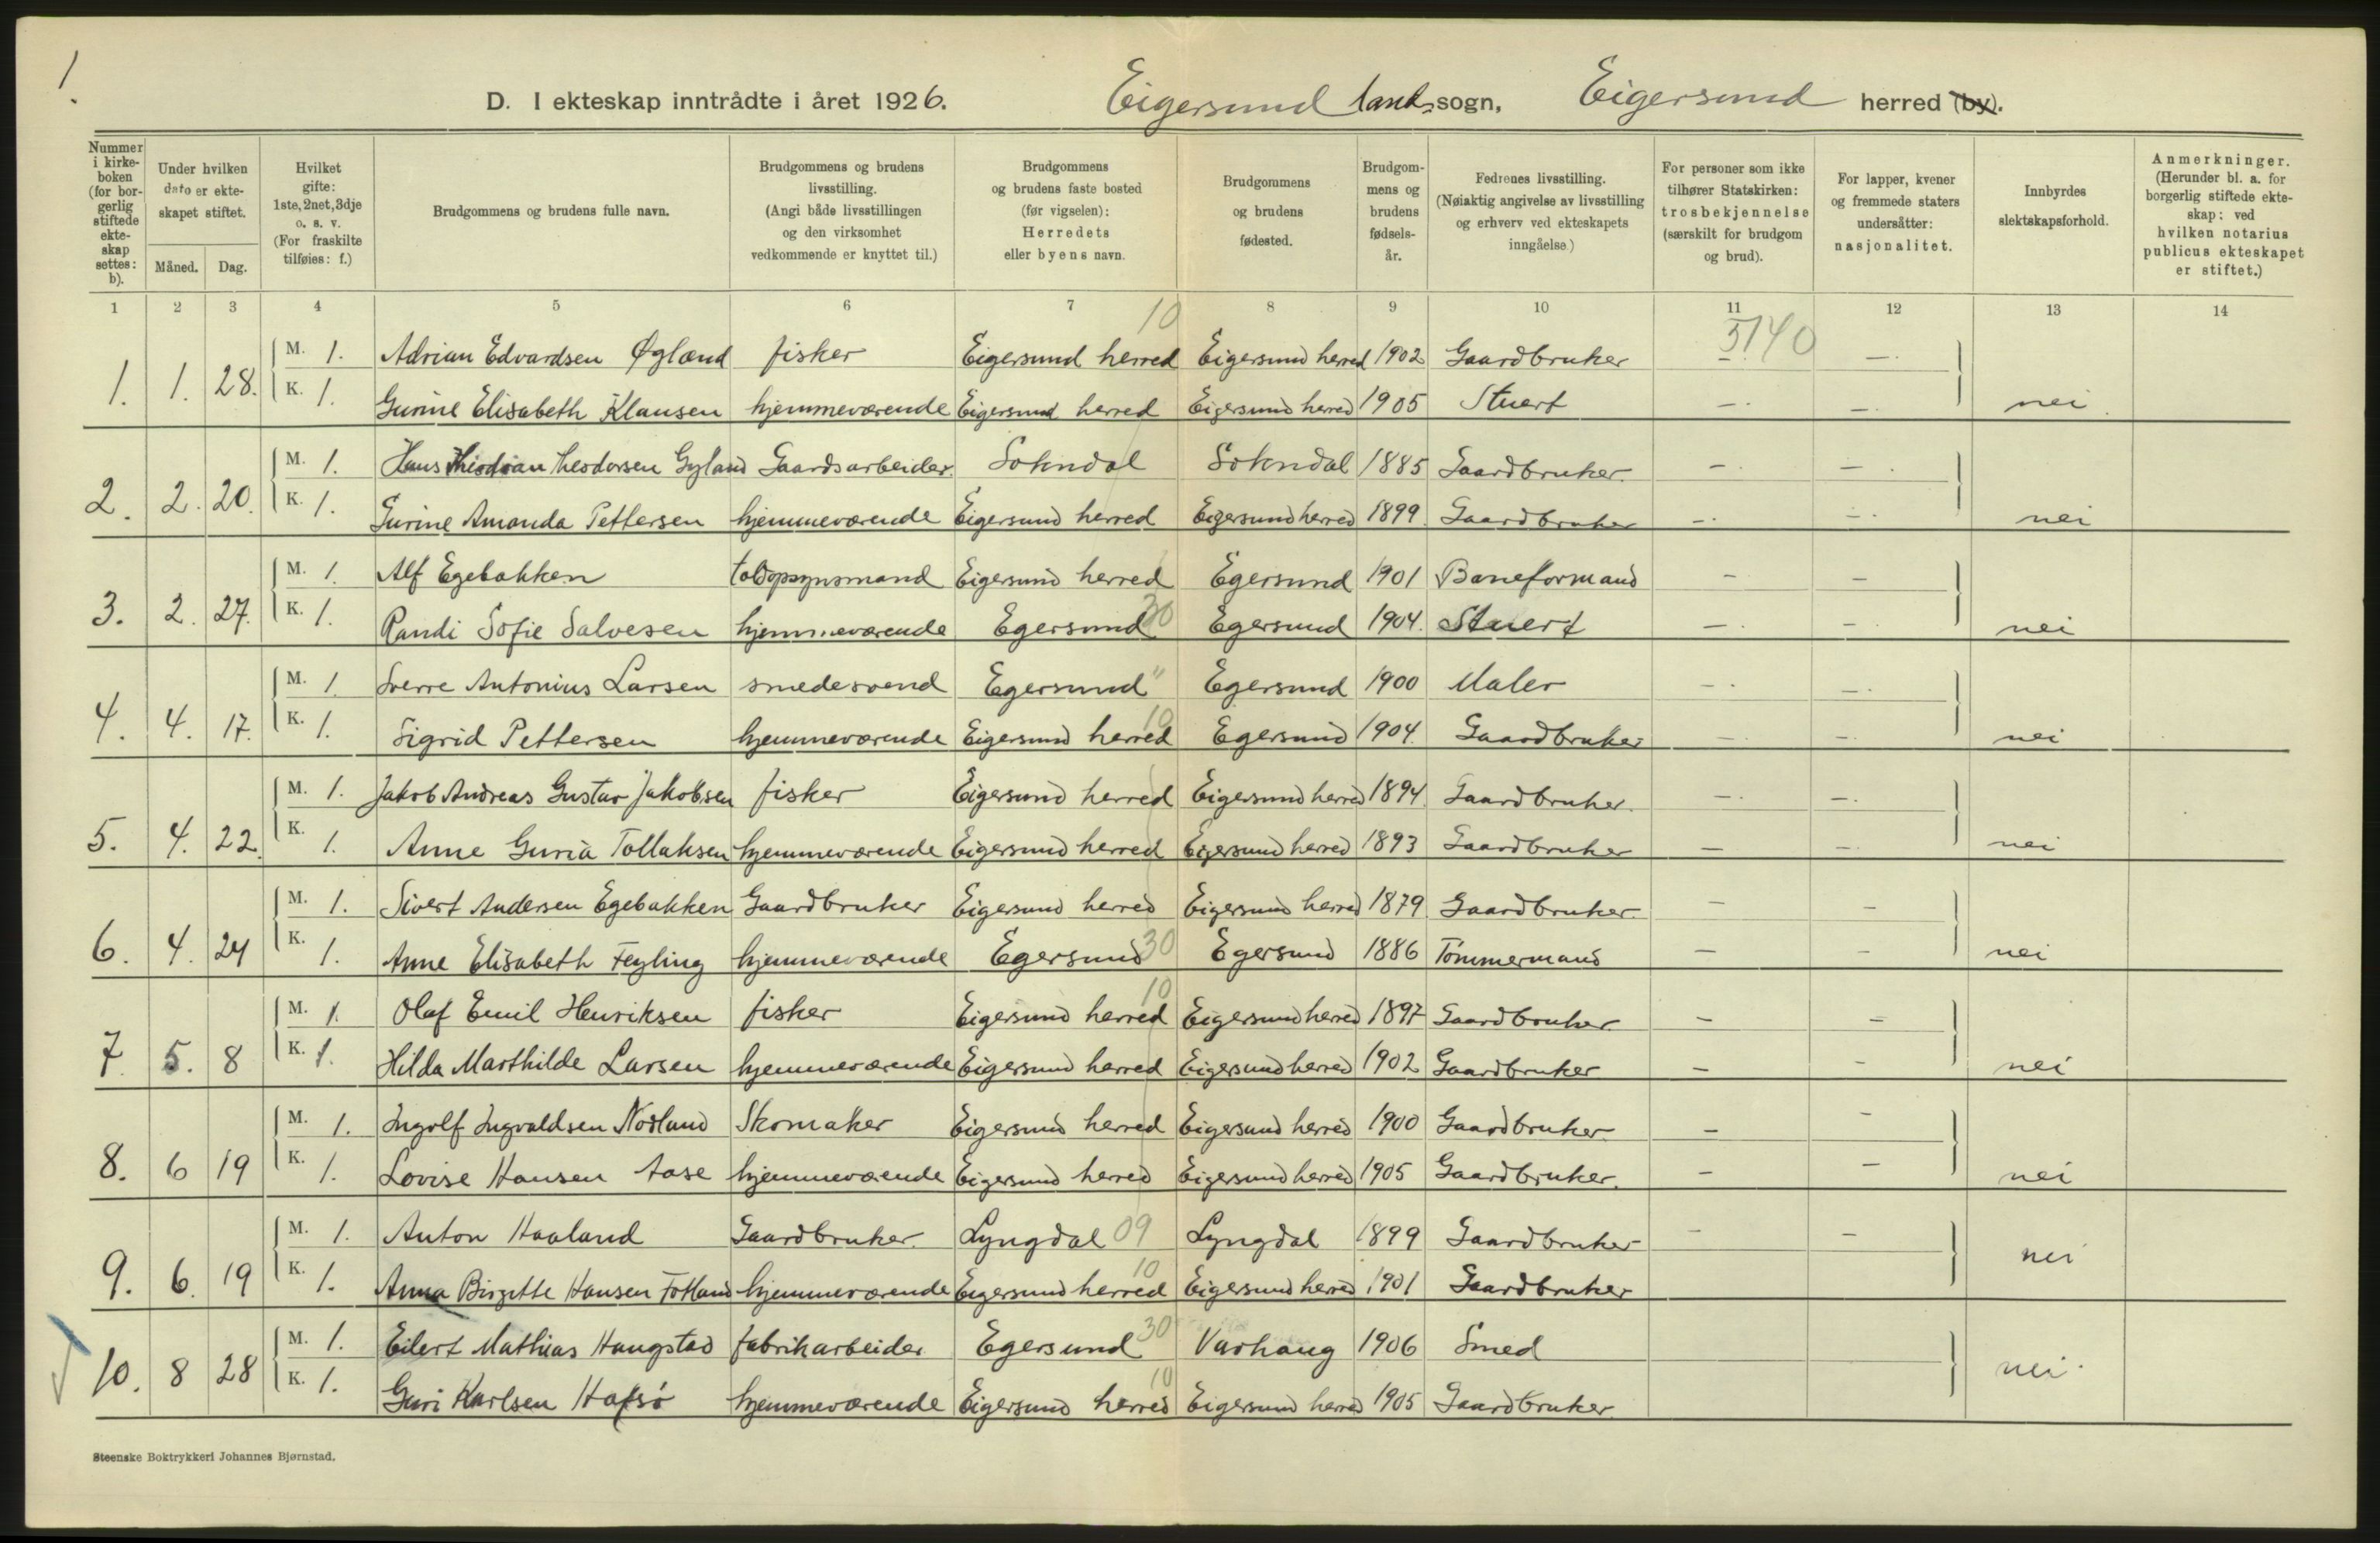 1.
D. I ekteskap inntrådte i året 1926. Eigersund land-sogn, Eigersund herred (by).
Nummer i kirke-boken (for bor-gerlig stiftede ekte-skap settes: b).
Under hvilken dato er ekte-skapet stiftet.
Måned. Dag.
Hvilket gifte: 1ste, 2net, 3dje o. s. v. (For fraskilte tilføies: f.)
Brudgommens og brudens fulle navn.
Brudgommens og brudens livsstilling. (Angi både livsstillingen og den virksomhet vedkommende er knyttet til.)
Brudgommens og brudens faste bosted (før vigselen): Herredets eller byens navn.
Brudgommens og brudens fødested.
Brudgom-mens og brudens fødsels-år.
Fedrenes livsstilling. (Nøiaktig angivelse av livsstilling og erhverv ved ekteskapets inngåelse.)
For personer som ikke tilhører Statskirken: trosbekjennelse (særskilt for brudgom og brud).
For lapper, kvener og fremmede staters undersåtter: nasjonalitet.
Innbyrdes slektskapsforhold.
Anmerkninger. (Herunder bl. a. for borgerlig stiftede ekte-skap: ved hvilken notarius publicus ekteskapet er stiftet.)
1 2 3 4 5 6 7 8 9 10 11 12 13 14
10 5140
1. 1. 28. M. 1. Adrian Edvardsen Øgland fisker Eigersund herred Eigersund herred 1902 Gaardbruker - -.
K. 1. Gurine Elisabeth Klausen hjemmeværende Eigersund herred Eigersund herred 1905 Stuert -. -. nei.
2. 2. 20. M. 1. Hans Theodsen Gyland Gaardsarbeider Sokndal Sokndal 1885 Gaardbruker. -. -.
K. 1. Gurine Amanda Pettersen hjemmeværende Eigersund herred Eigersund herred 1899 Gaardbruker -. -. nei
3. 2. 27. M. 1. Alf Egebakken toldopsynsmand Eigersund herred Egersund 1901 Baneformand - -
K. 1. Randi Sofie Salvesen hjemmeværende Egersund 30 Egersund 1904. Stuert -. -. nei
4. 4. 17. M. 1. Sverre Antonius Larsen smedesvend Egersund " Egersund 1900 Maler -. -.
K. 1. Sigrid Pettersen hjemmeværende Eigersund herred 10 Egersund 1904. Gaardbruker -. -. nei
5. 4. 22. M. 1. Jakob Andreas Gustav Jakobsen fisker Eigersund herred Eigersund herred 1894. Gaardbruker. -. -.
K. 1. Anne Guria Tollaksen hjemmeværende Eigersund herred Eigersund herred 1893 Gaardbruker - -. nei
6. 4. 24 M. 1. Sivert Andersen Egebakken Gaardbruker Eigersund herred Eigersund herred 1879. Gaardbruker. - -
K. 1. Anne Elisabeth Feyling hjemmeværende Egersund 30 Egersund 1886 Tömmermand - - nei
7. 5. 8 M. 1. Olaf Emil Henriksen fisker Eigersund herred 10 Eigersund herred 1897 Gaardbruker - -
K. 1. Hilda Marthilde Larsen hjemmeværende Eigersund herred Eigersund herred 1902 Gaardbruker - - nei
8. 6 19 M. 1. Ingolf Ingvaldsen Nodland Skomaker Eigersund herred Eigersund herred 1900 Gaardbruker - -
K. 1. Lovise Hansen Aase hjemmeværende Eigersund herred Eigersund herred 1905 Gaardbruker. - - nei
9. 6. 19 M. 1. Anton Haaland Gaardbruker. Lyngdal 09 Lyngdal 1899 Gaardbruker - -
K. 1. Anna Birgitte Hansen Fotland hjemmeværende Eigersund herred 10 Eigersund herred 1901 Gaardbruker nei
10. 8 28 M. 1. Eilert Mathias Haugstad fabrikarbeider Egersund 30 Varhaug 1906 Smed
K. 1. Guri Karlsen Hafsö hjemmeværende Eigersund herred 10 Eigersund herred 1905 Gaardbruker. nei.
Steenske Boktrykkeri Johannes Bjørnstad.